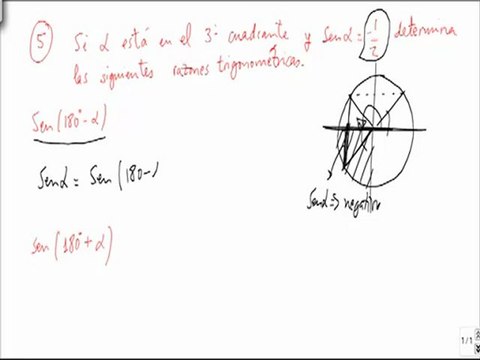 5 Si α está en el 3º cuadrante y Sen α = -1/2 determina
las siguientes razones trigonométricas.
Sen (180° - α)
Sen α = Sen (180 -
Sen α => negativo
sen (180° + α)
1/1